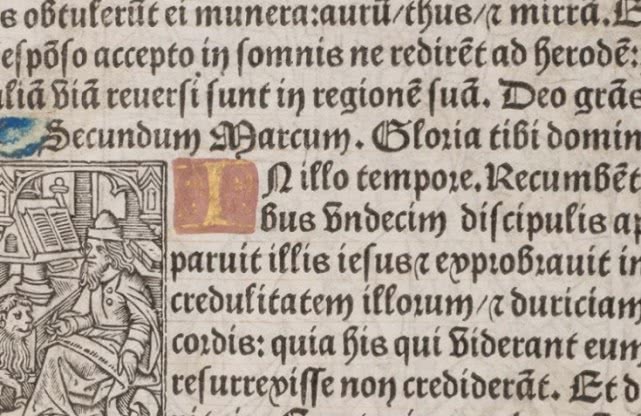 s obtulerũt ei munera:aurũ/thus/⁊ mirrã.E
espõso accepto in somnis ne redirẽt ad herodẽ:
aliã viã reuersi sunt in regionẽ suã. Deo grãs
Secundum Marcum. Gloria tibi domin
IN illo tempore.Recumbẽt
bus vndecim discipulis ap
paruit illis iesus⁊ exprobrauit in
credulitatem illorum/⁊ duriciam
cordis: quia his qui viderant eum
resurrexisse non crediderãt. Et d